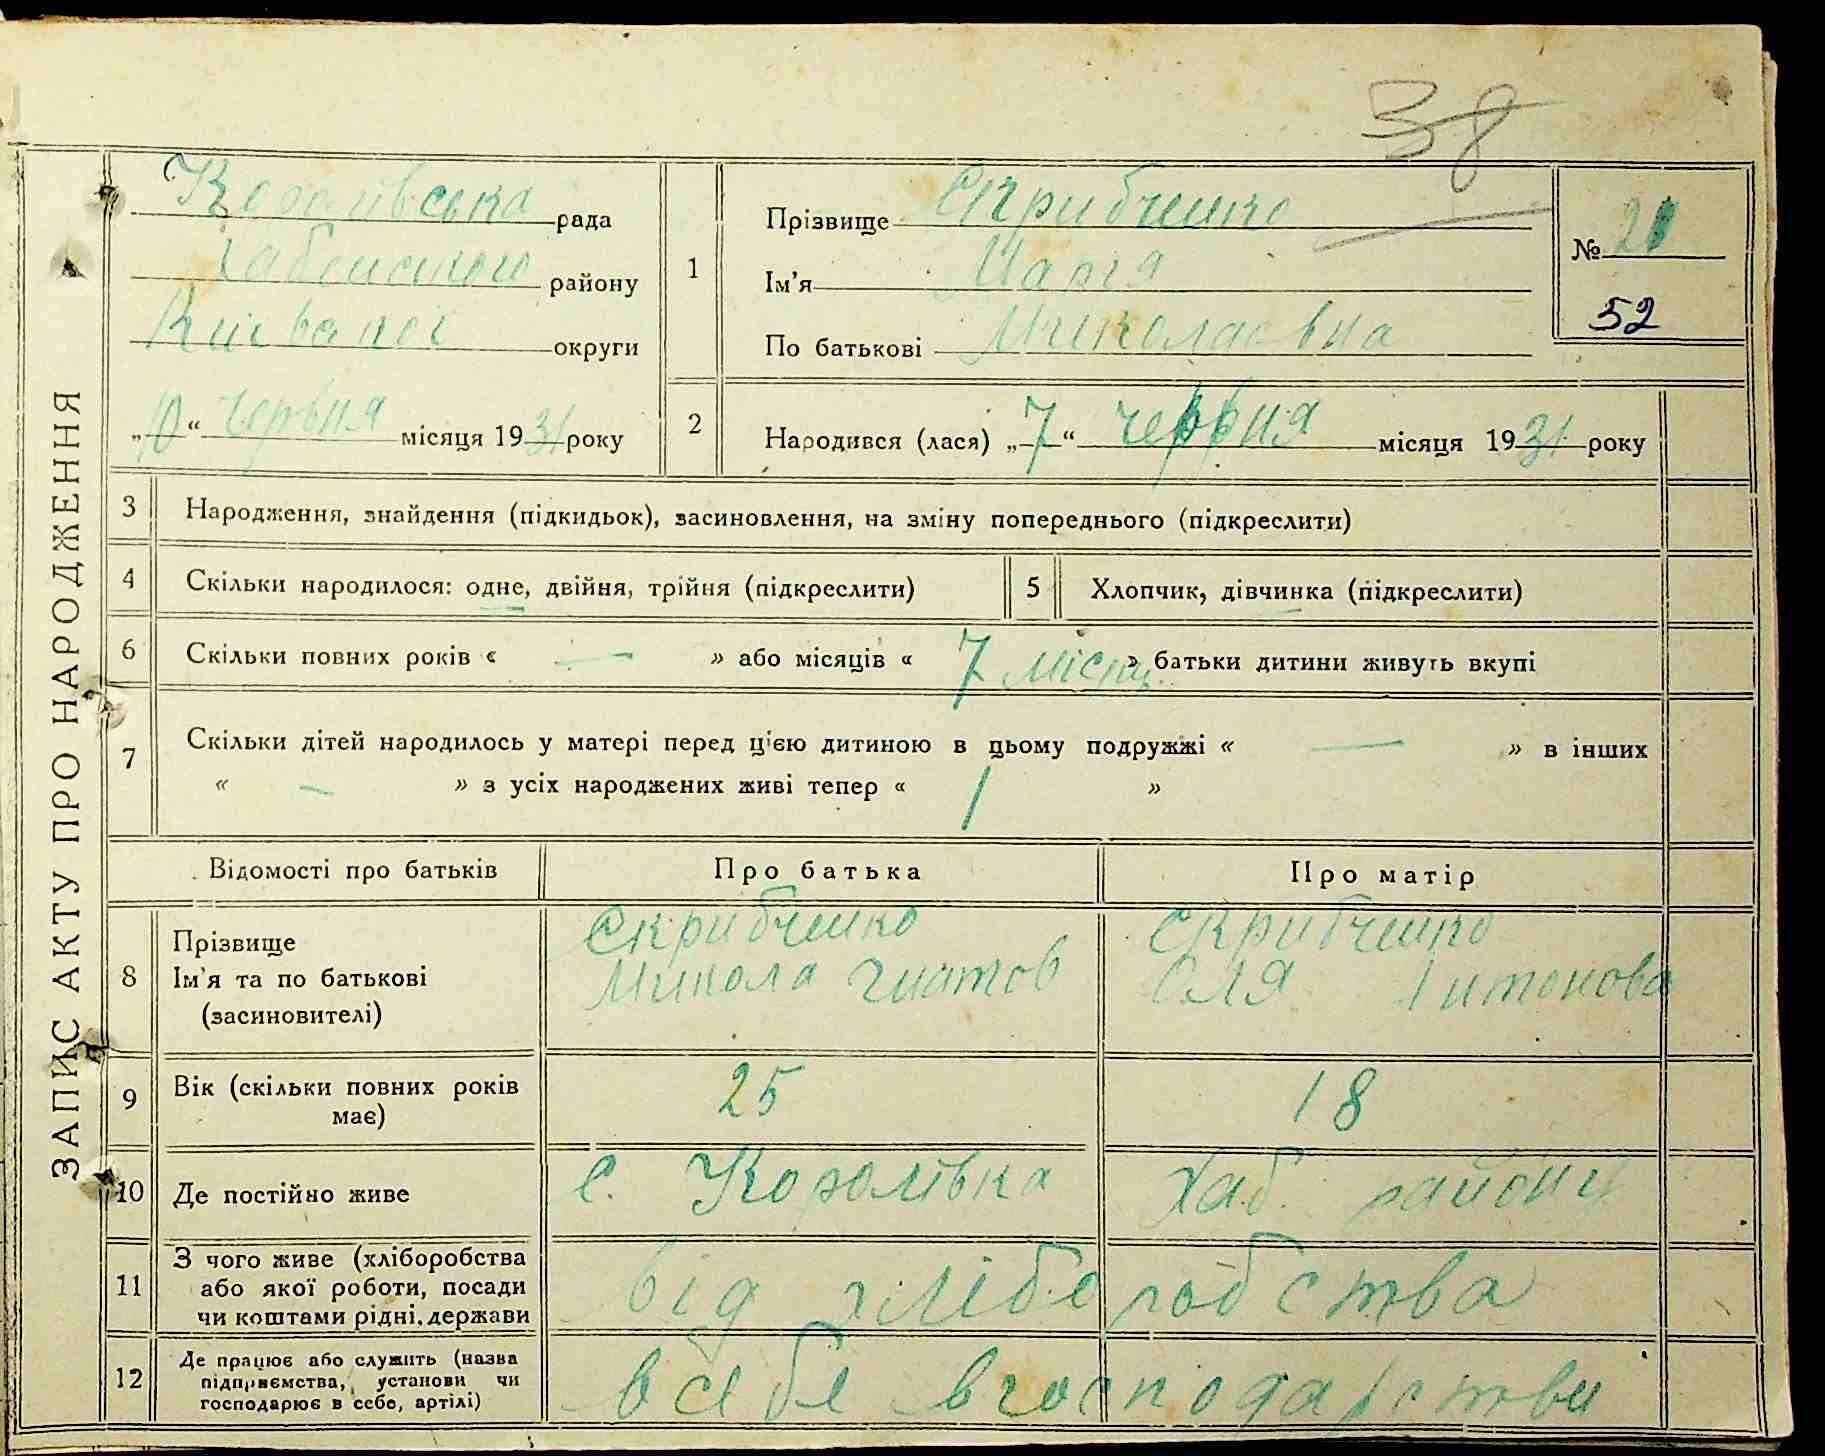 38
ЗАПИС АКТУ ПРО НАРОДЖЕННЯ
Королівська рада
Хабенського району
Київської округи
„10“ червня місяця 1931 року
1
Прізвище Скрибченко
Ім'я Марія
По батькові Миколаєвна
№ 20
52
2
Народився (лася) „7“ червня місяця 1931 року
3 Народження, знайдення (підкидьок), засиновлення, на зміну попереднього (підкреслити)
4 Скільки народилося: одне, двійня, трійня (підкреслити)
5 Хлопчик, дівчинка (підкреслити)
6 Скільки повних років « — » або місяців « 7 місяц » батьки дитини живуть вкупі
7 Скільки дітей народилось у матері перед цією дитиною в цьому подружжі « — » в інших
« — » з усіх народжених живі тепер « 1 »
Відомості про батьків Про батька Про матір
8
Прізвище
Ім'я та по батькові
(засиновителі)
Скрибченко
Микола Гнатов
Скрибченко
Оля Антонова
9
Вік (скільки повних років
має)
25 18
10 Де постійно живе с. Королівка Хаб. району
11
З чого живе (хліборобства
або якої роботи, посади
чи коштами рідні, держави
від хліборобства
12
Де працює або служить (назва
підприємства, установи чи
господарює в себе, артілі)
в себе в господарстви